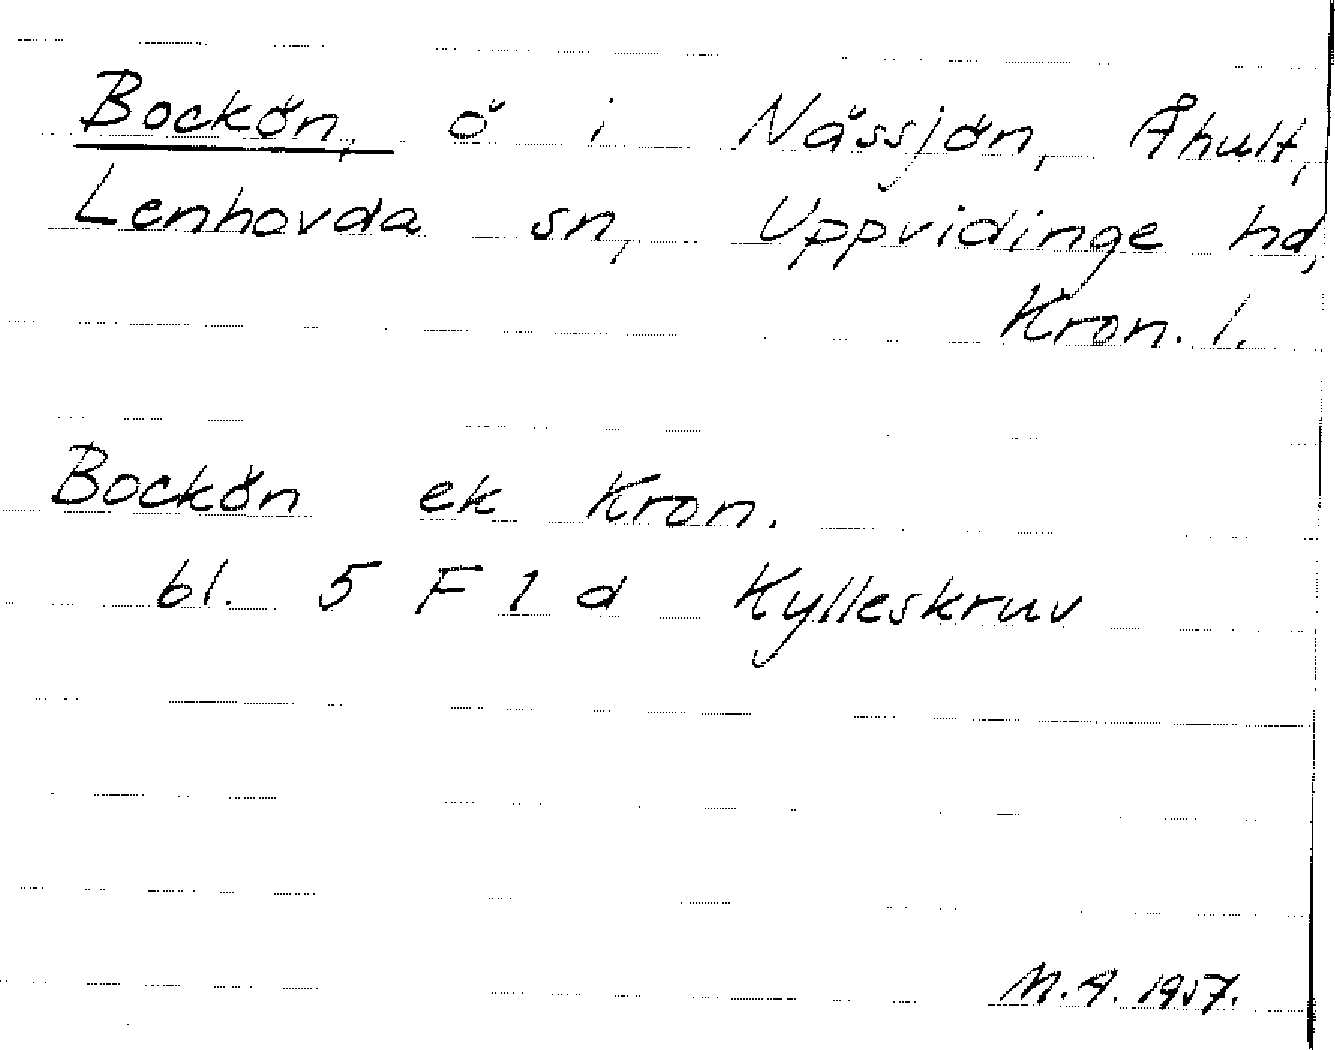 Bockön, ö i Nässjön, Åhult,
Lenhovda sn, Uppvidinge hd,
Kron. l.
Bockön ek Kron.
bl. 5 F 1 d Kylleskruv
M.A. 1957.